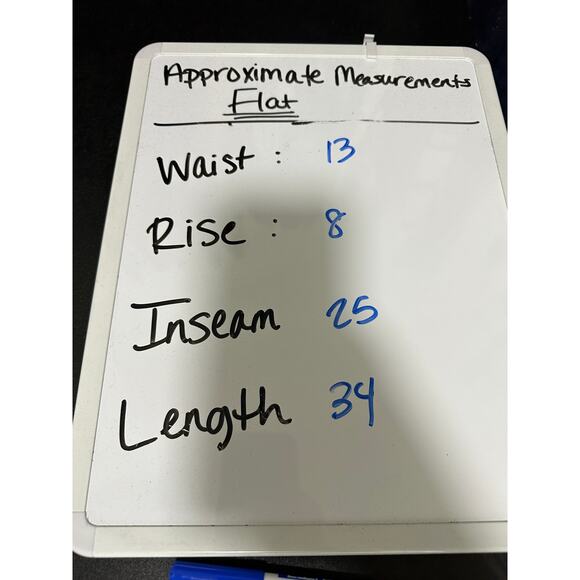 Approximate Measurements
Flat
Waist : 13
Rise : 8
Inseam 25
Length 34